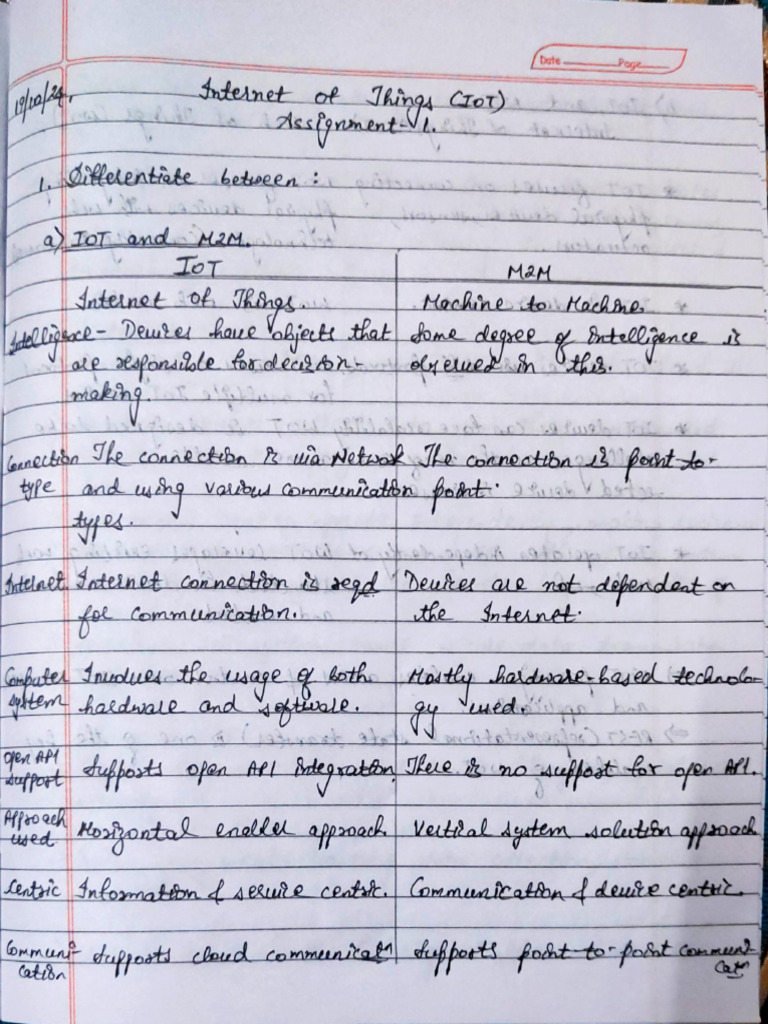 Date Page
19/10/24.
Internet of Things (IOT)
Assignment-1.
1. Differentiate between:
a) IOT and M2M.
IOT M2M
Internet of Things. Machine to Machine.
Intelligence - Devices have objects that Some degree of intelligence is
are responsible for decision- observed in this.
making.
Connection The connection is via Network The connection is point-to-
type and using various communication point.
types.
Internet Internet connection is reqd Devices are not dependent on
for communication. the Internet.
Computer Involves the usage of both Mostly hardware-based technolo-
system hardware and software. gy used.
Open API Supports open API integration. There is no support for open API.
support
Approach Horizontal enabler approach. Vertical system solution approach
used
Centric Information & service centric. Communication & device centric.
Communi- Supports cloud communicatn Supports point-to-point communi-
cation catn